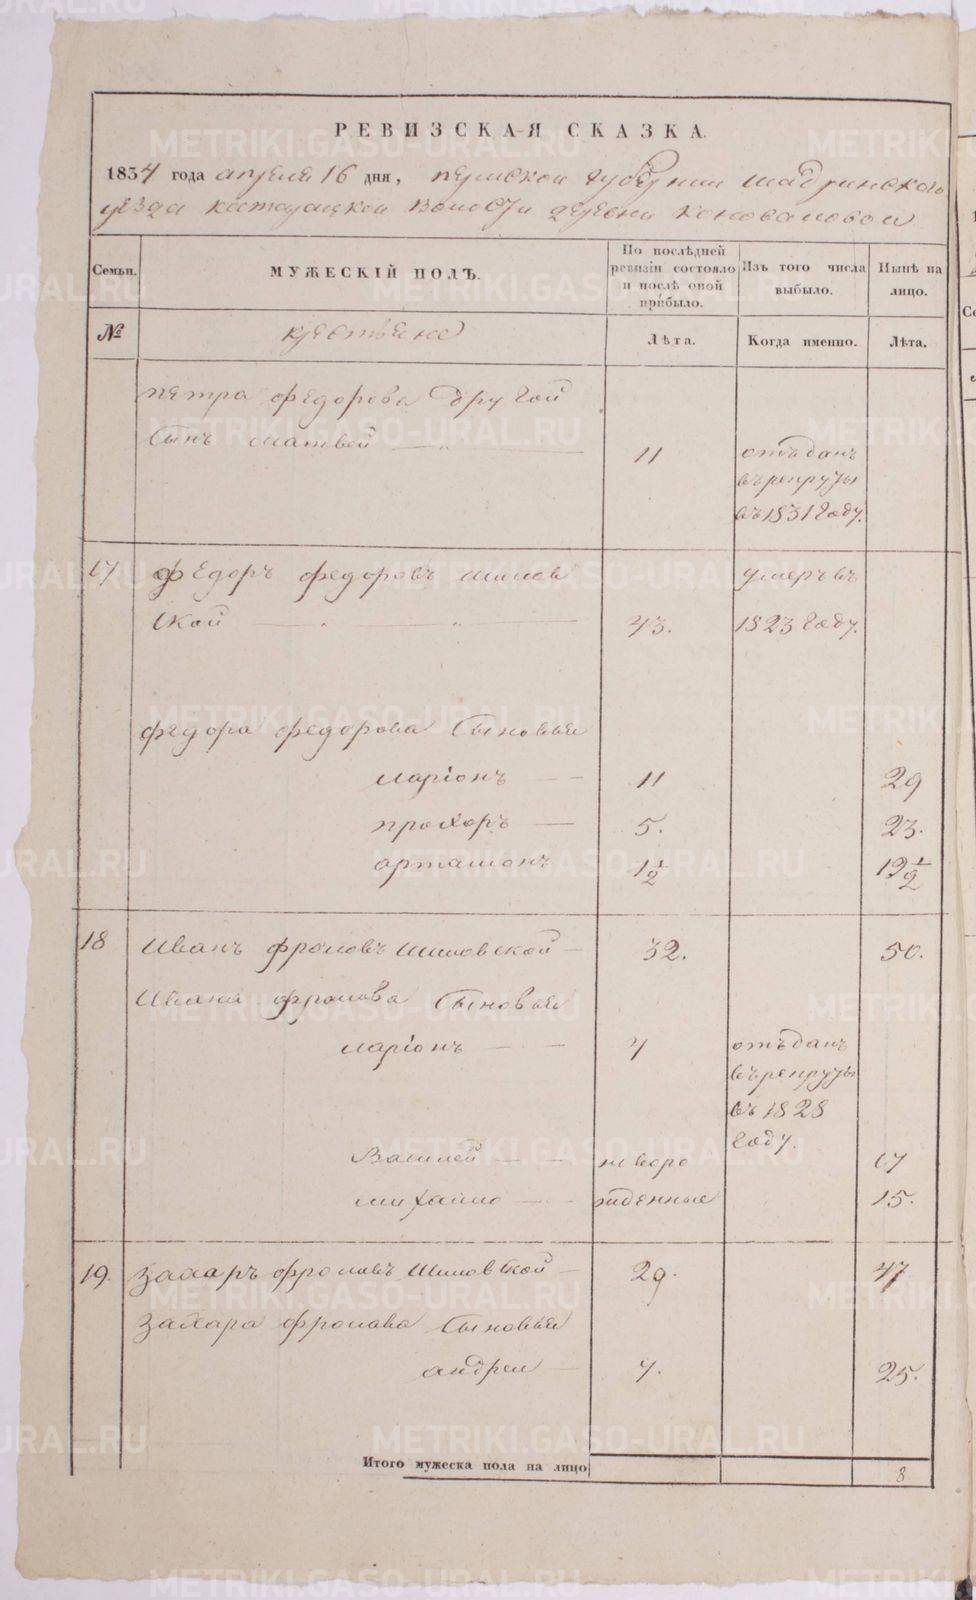 РЕВИЗСКАЯ СКАЗКА.
1834 года апреля 16 дня, пермской губернии шадринского
уезда волости деревни коноваловой
Семьи. МУЖЕСКІЙ ПОЛЪ. По послѣдней ревизіи состояло и послѣ оной прибыло. Изъ того числа выбыло. Нынѣ на лицо.
№ крестьяне Лѣта. Когда именно. Лѣта.
петра федорова другой
сынъ матвей 11 отъданъ
въ рекруты
въ 1831 году.
17 федоръ федоровъ шилов умеръ въ
ской 43. 1823 году.
федора федорова сыновья
ларіонъ 11 29
прохоръ 5. 23.
артамонъ 1 1/2 19 1/2
18 Иванъ фроловъ шиловской 32. 50.
Ивана фролова сыновья
ларіонъ 4 отъданъ
въ рекруты
въ 1828
году.
Василей новоро 17
михайло жденные 15.
19. захаръ фроловъ шиловской 29. 47
захара фролова сыновья
андреи 7. 25.
Итого мужеска пола на лицо 8
METRIKI.GASO-URAL.RU